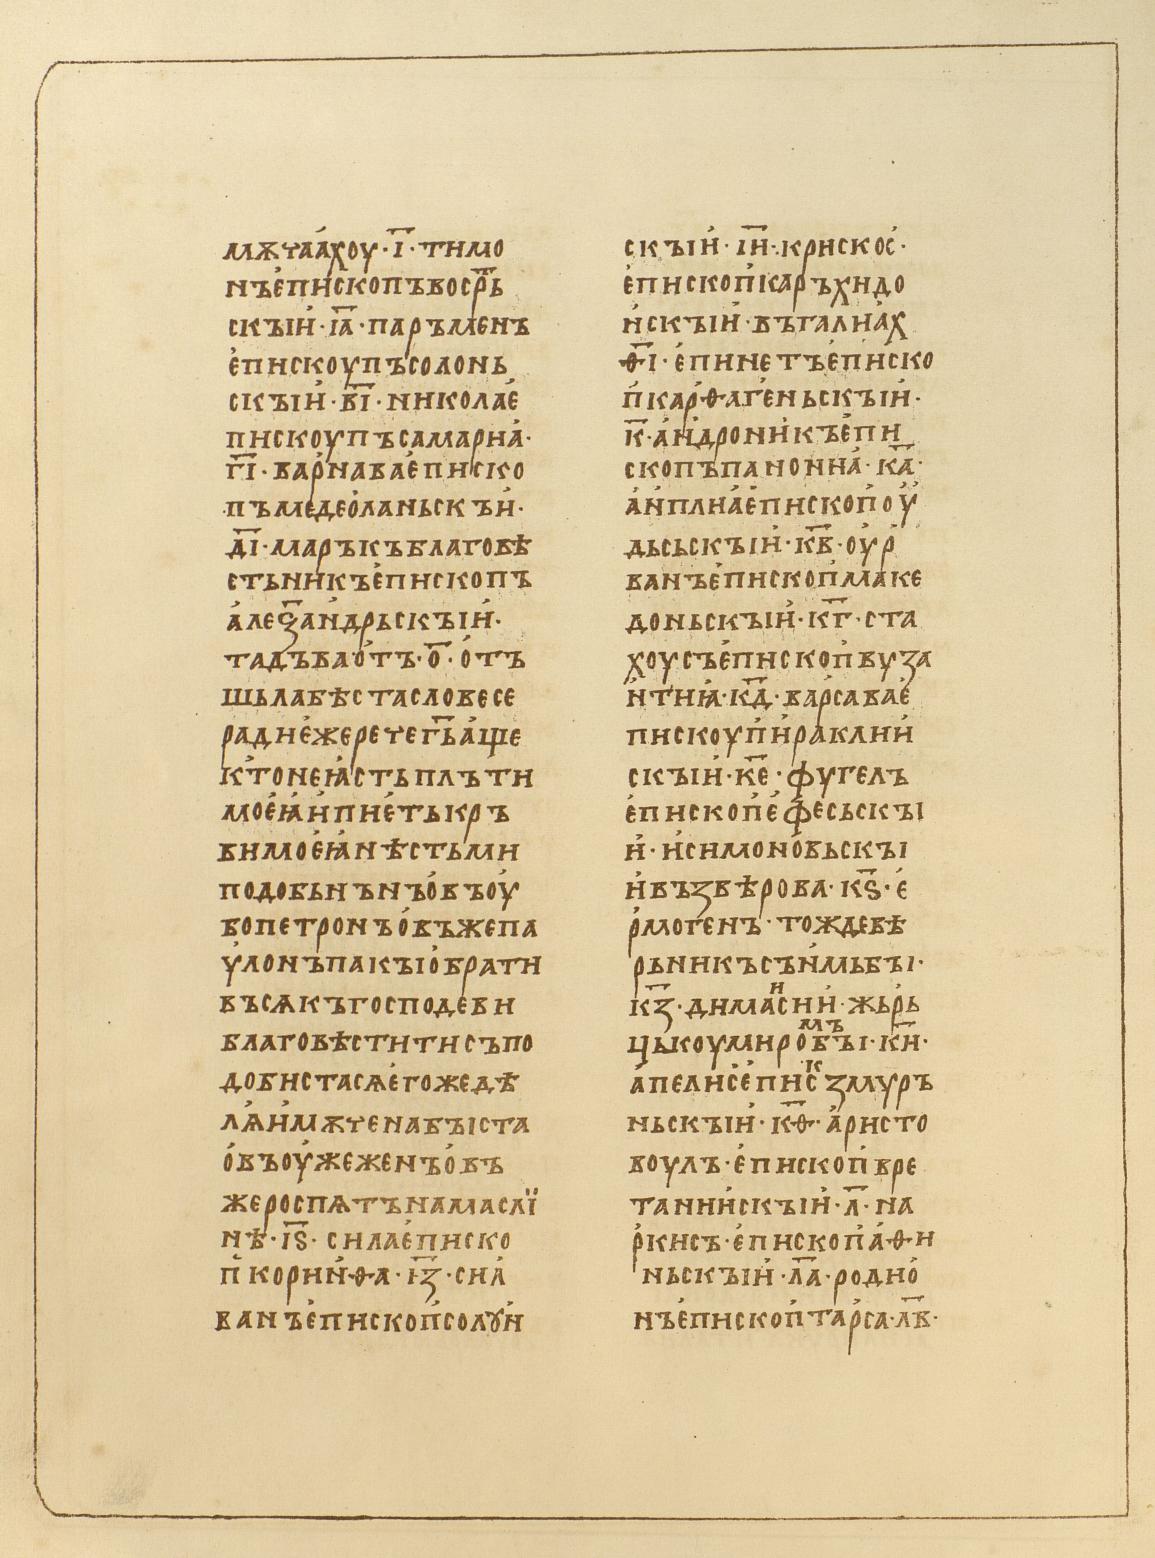 мѫчаахоу · і҃ · тимо
нъепископъвосрь
скыи · іа҃ · паръменъ
епискоупъсолонь
скыи · ві҃ · николае
пискоупъсамариа ·
гі҃ · варнаваеписко
пъмедеоланьскъи ·
ді҃ · маръкъблаговѣ
стьникъепископъ
алеѯандрьскыи ·
тадъваотъ · о҃ · отъ
шьлавѣстасловесе
радиежеречегь҃аще
ктонеꙗстьплъти
моеѩипиетькръ
вимоеѩнѣстьми
подобьнънъовъоу
бопетронъовъжепа
улонъпакыобрати
въсѧкъгосподеви
благовѣститисъпо
добистасѧегожедѣ
лѧимѫченабыста
овъоужеженъовъ
жероспѧтънамаслї
нѣ · іѕ҃ · силаеписко
п коринѳа · із҃ · сил
ванъепископсолꙋн
скыи · іи҃ · крискос ·
епископкаръхидо
нскыи · въгалиах
ѳ҃і · епинетъеписко
пкарѳагеньскыи ·
к҃ · андроникъепи
скопъпанониа · ка҃ ·
анплиаепископоу
дьсьскыи · кв҃ · оур
ванъепископмаке
доньскыи · кг҃ · ста
хоусъепископвуза
нтиꙗ · кд҃ · варсавае
пискоупираклии
скыи · ке҃ · фугелъ
епископефесьскы
и · исимоновьскы
ивъзвѣрова · кѕ҃ · е
рмогенъ · тождевѣ
рьникъсъимьбы ·
кз҃ · димасиии · жьрь
цыкоумиромъвъі · ки҃ ·
апелисепискзмуръ
ньскыи · кѳ҃ · аристо
воулъ · епископвре
танийскыи · л҃ · на
ркисъ · епископаѳи
ньскыи · ла҃ · родио
нъепископтарса · лв҃ ·